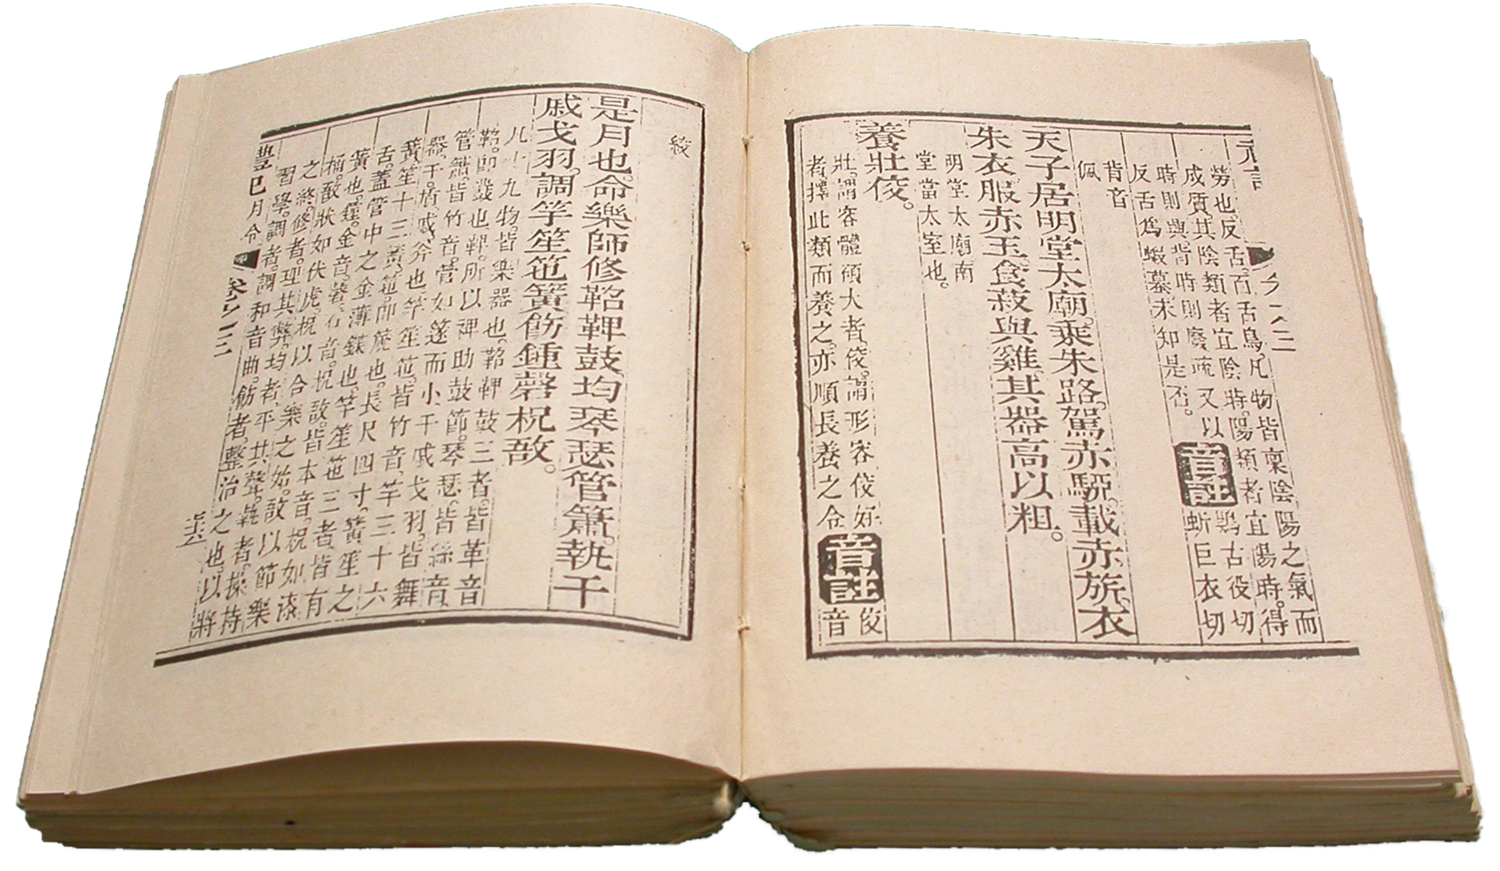 勞也反舌。百舌鳥。凡物皆稟陰陽之氣而
成質。其陰類者宜陰時。陽類者宜陽時。得
時則興。背時則廢。疏又以音註鶪古役切
反舌爲蝦蟇。未知是否。蚚巨衣切
背音
佩
天子居明堂太廟。乘朱路。駕赤駵。載赤旂。衣
朱衣。服赤玉。食菽與雞。其器高以粗。
明堂太廟南
堂當太室也。
養壯佼。
壯。謂容體碩大者。佼。謂形容佼好音註佼
者。擇此類而養之。亦順長養之令音
絞
是月也。命樂師修鞀鞞鼓。均琴瑟管簫。執干
戚戈羽。調竽笙竾簧。飭鍾磬柷敔。
凡十九物。皆樂器也。鞀鞞鼓三者。皆革音
鞀。卽鼗也。鞞。所以裨助鼓節。琴瑟。皆絲音。
管簫。皆竹音。管如篴而小。干戚戈羽。皆舞
器。干。盾。戚。斧也。竽笙竾。皆竹音。竽三十六
簧。笙十三簧。竾。卽箎也。長尺四寸。簧。笙之
舌。蓋管中之金薄鍱也。竽笙竾三者。皆有
簧也。鍾。金音。磬。石音。柷敔。皆木音。柷如漆
桶。敔狀如伏虎。柷以合樂之始。敔以節樂
之終。修者。理其弊。均者。平其聲。執者。操持
習學。調者。調和音曲。飭者。整治之也。以將
禮記月令 卷之三